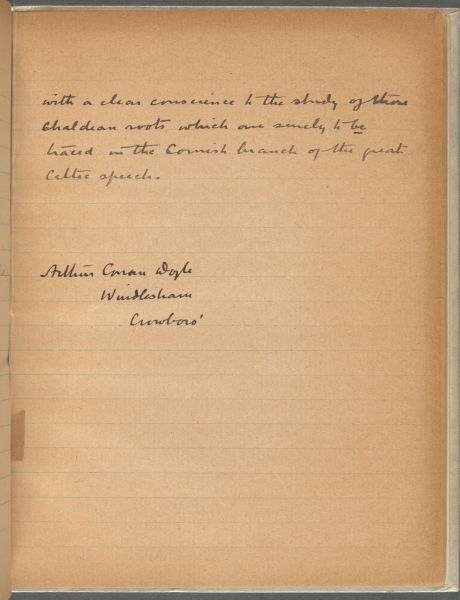 with a clear conscience to the study of those
Chaldean roots which are surely to be
traced in the Cornish branch of the great
Celtic speech.
Arthur Conan Doyle
Windlesham
Crowboro'